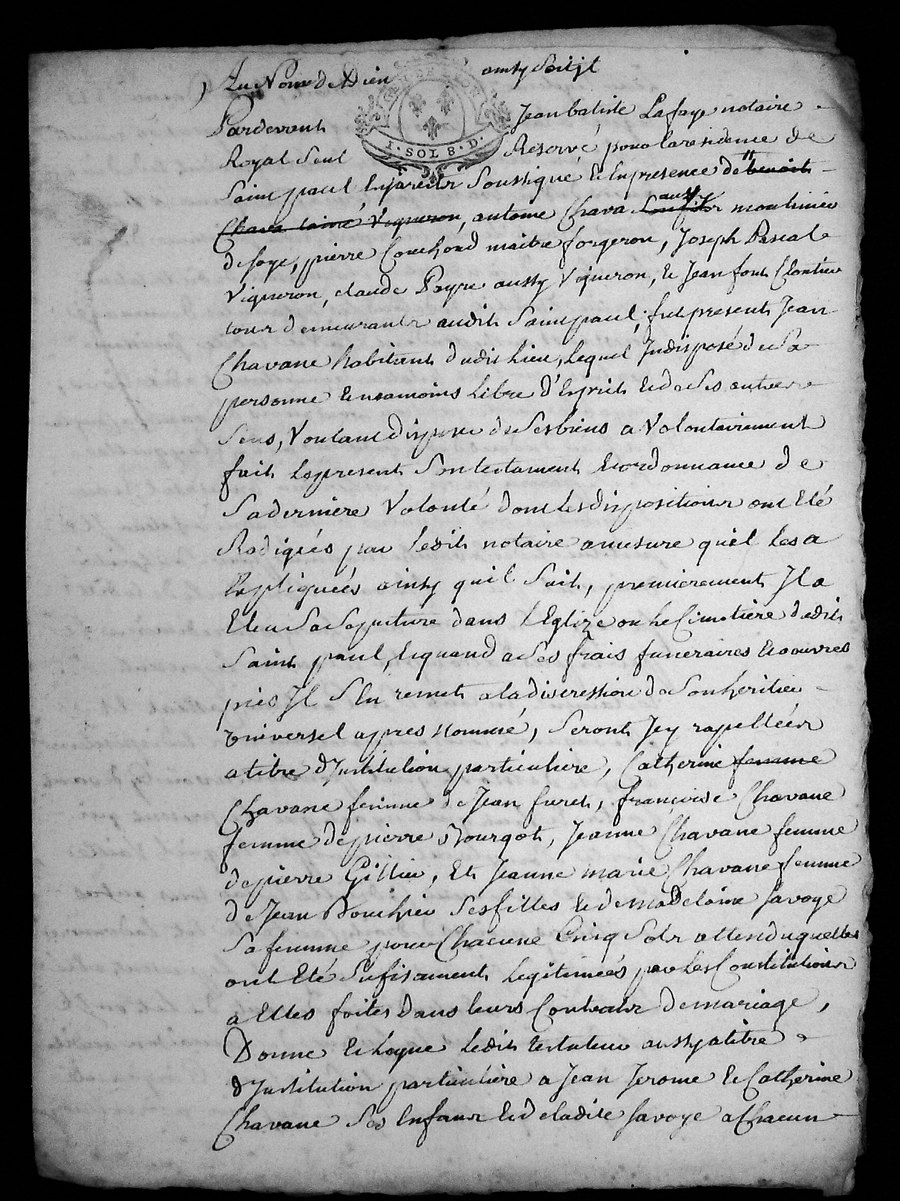 Au Nom de Dieu amsy soitjl
I · SOL 8 · D ·
Pardevent Jean batiste Lafaye notaire
Royal Seul Reservé pour la residence de
Saint paul Enjarests Soussigné & Enpresence de benoit
Chava lainé Vigneron, antoine Chava aussy moulinie
de soye, pierre Couchoud maitre forgeron, Joseph Pascal
Vigneron, claude Payre aussy Vigneron, & Jean font Chartier
tour demeurants audit Saint paul, fut present Jean
Chavane habitant dudit Lieu, Lequel Jndisposé de Sa
personne & neamoins Libre d'Esprit & de Ses autres
Sens, Voulant disposer de Ses biens a Volontairement
fait Lepresent Son testament & ordonnance de
Sa derniere Volonté dont Les dispositions ont Eté
Redigées par Ledit notaire amesure quil les a
Expliquées ainsy quil Suit, premierement Jl a
Eleu Sa Sepulture dans L'Eglize ou le Cimetiere dudit
Saint paul, & quand a Ses frais funeraires & oeuvres
pies Jl S'En remet a la discression de Son heritier
universel apres nommé, Seront Jcy rapellées
atitre d'Jnstitution particuliere, Catherine femme
Chavane femme de Jean furet, françoise Chavane
femme de pierre Bourgot, Jeanne Chavane femme
de pierre Gillier, Et Jeanne marie Chavane femme
de Jean Bouchier Ses filles & de Madelaine Savoye
Sa femme pour Chacune Cinq Sols attendu quelles
ont Eté Sufisament Legitimées par Les Constitutions
a Elles faites dans leurs Contrats de mariage,
Donne & Legue Ledit testateur aussy atitre
d'Jnstitution particuliere a Jean Jerome & Catherine
Chavane Ses Enfans & de ladite Savoye a Chacun